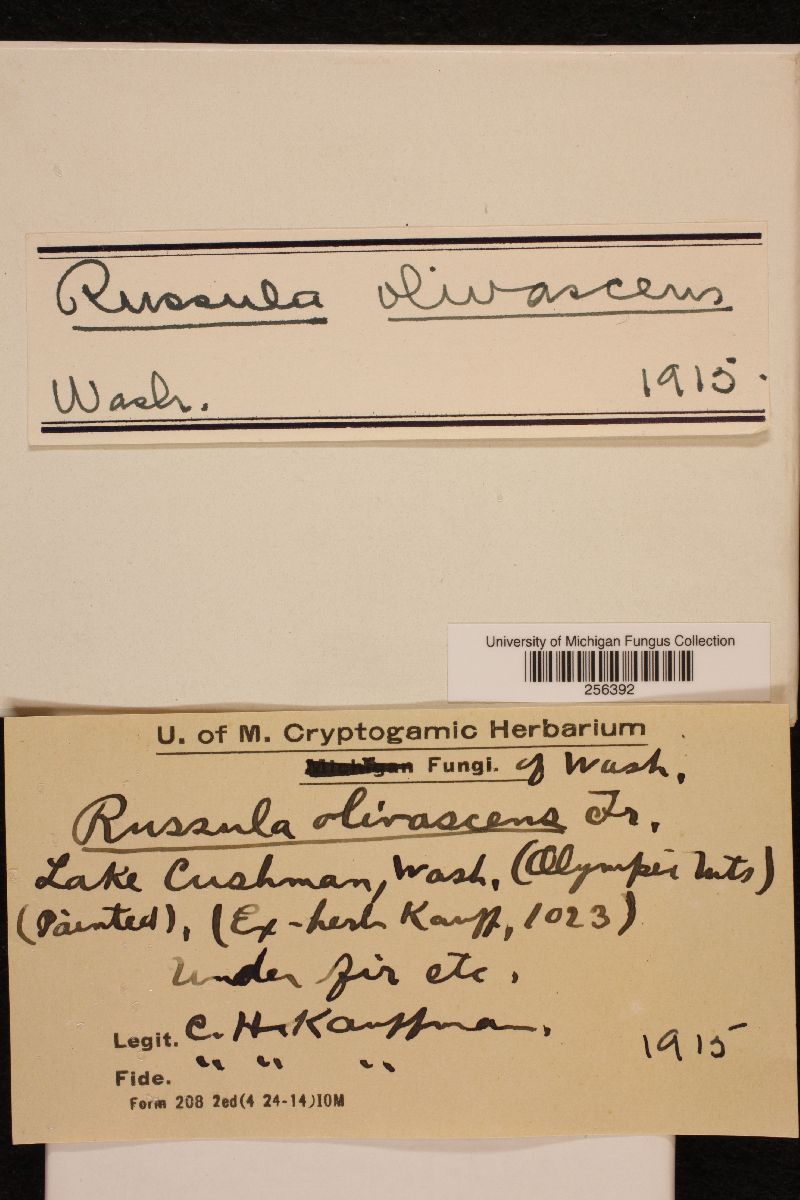 Russula olivascens
Wash. 1915.
University of Michigan Fungus Collection
256392
U. of M. Cryptogamic Herbarium
Michigan Fungi. of Wash.
Russula olivascens Fr.
Lake Cushman, Wash. (Olympic Mts)
(Painted), (Ex-herb Kauff, 1023)
Under fir etc.
Legit. C. H. Kauffman. 1915
Fide. " " "
Form 208 2ed(4 24-14)10M